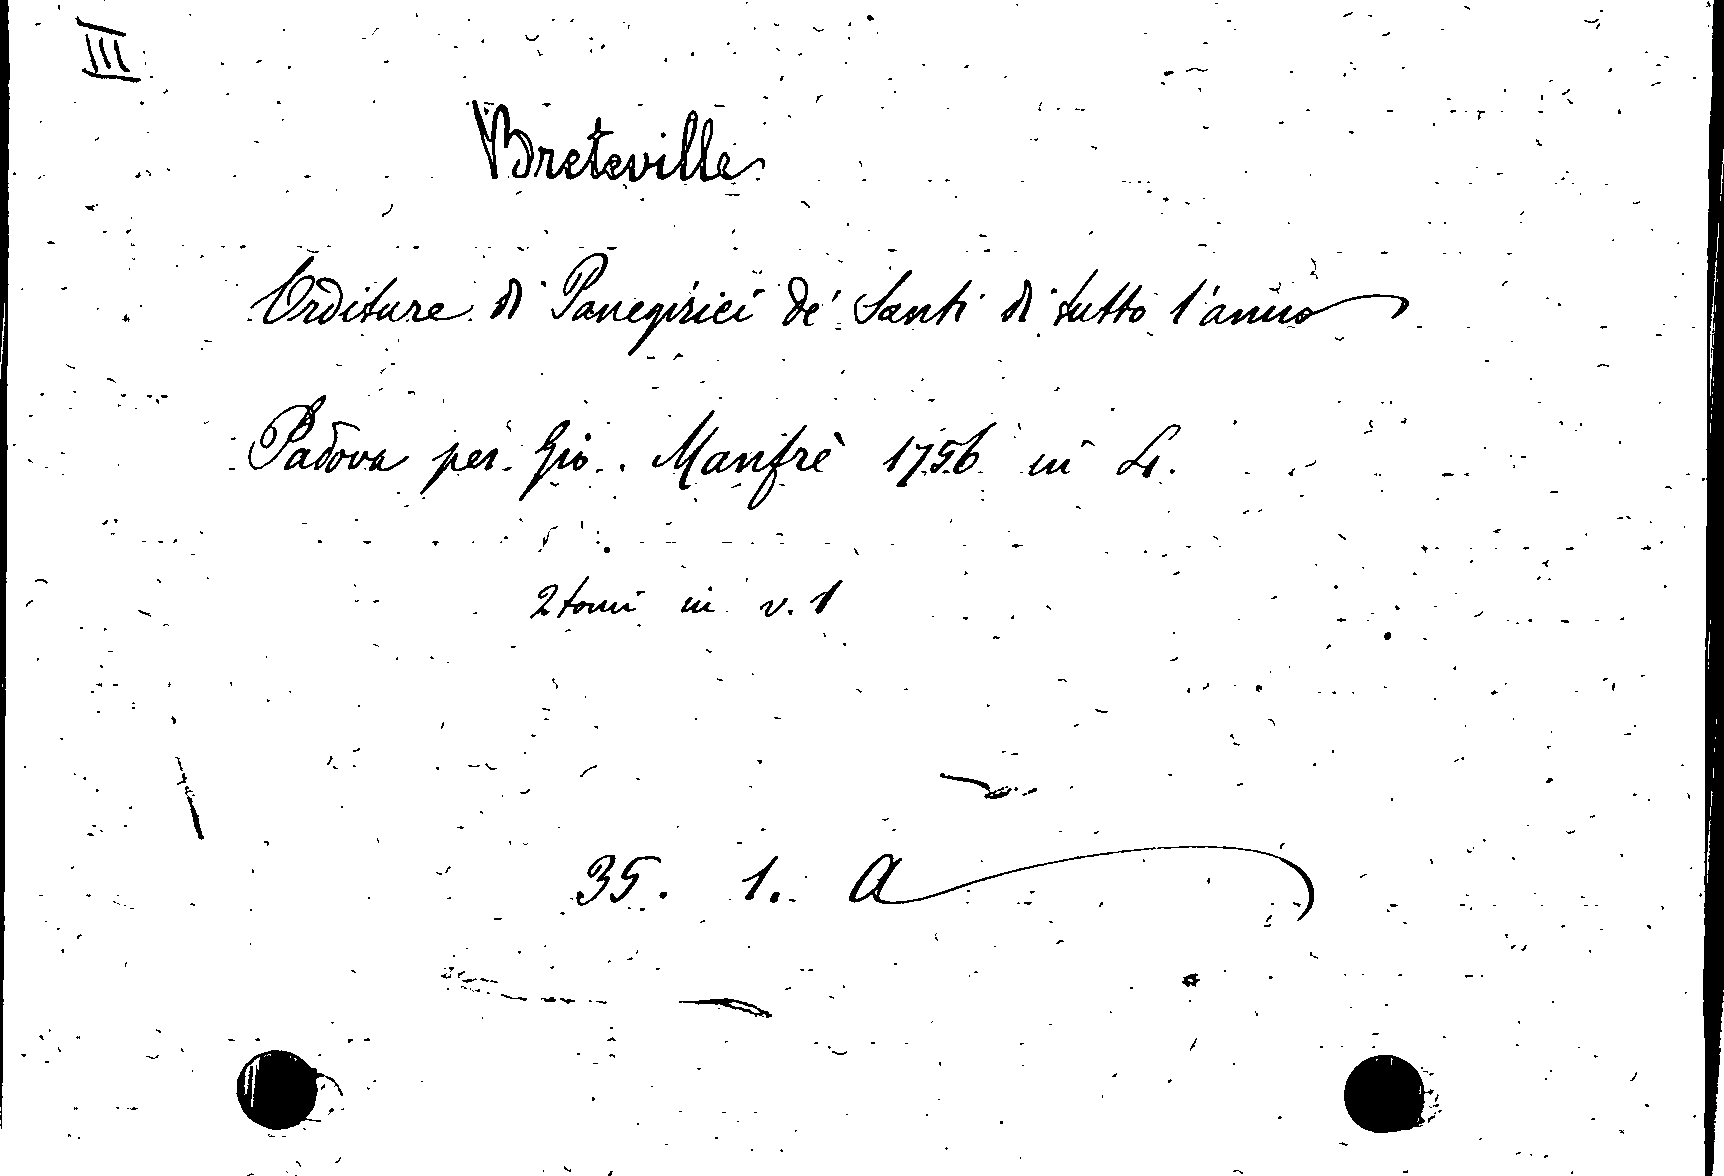 III
Breteville
Orditure di Panegirici de' Santi di tutto l'anno
Padova per Gio. Manfrè 1756 in 4.
2 tomi in v. 1
35. 1. A